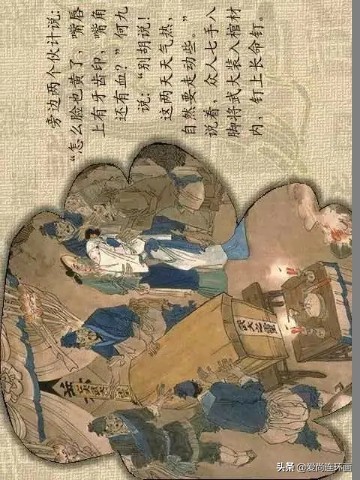 旁边两个伙计说:
“怎么脸也黄了,嘴唇
上有牙齿印,嘴角
还有血?”何九
说:“别胡说!
这两天天气热,
自然要走动些。”
说着,众人七手八
脚将武大装入棺材
内,钉上长命钉。
武大之灵
头条 @爱尚连环画